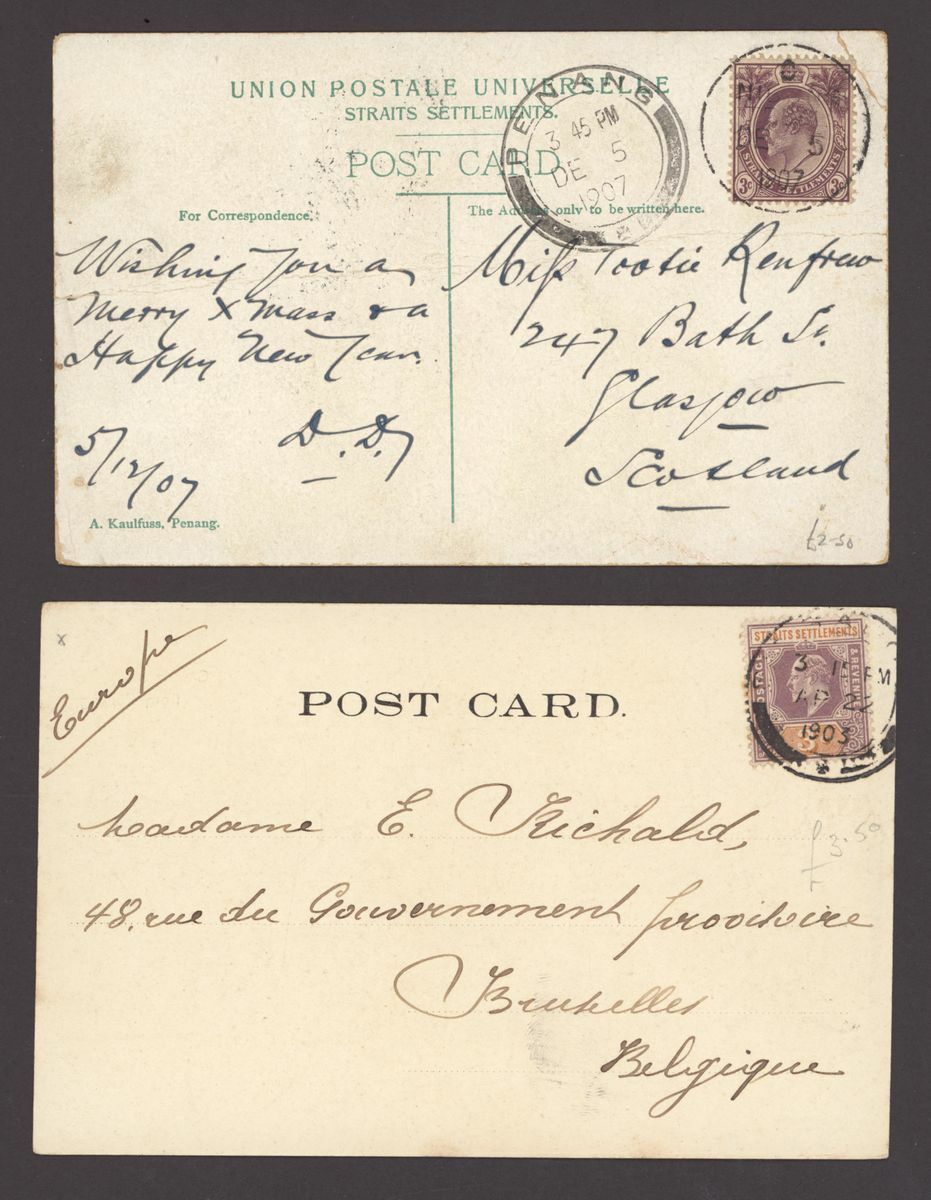 UNION POSTALE UNIVERSELLE
STRAITS SETTLEMENTS.
POST CARD
PENANG
3 45 PM
DE 5
1907
DE 5
1907
STRAITS SETTLEMENTS
3c 3c
For Correspondence.
The Address only to be written here.
Wishing you a
Merry Xmass & a
Happy New Year.
D.D.
5/12/07
Miss Tootie Renfrew
247 Bath St.
Glasgow
Scotland
A. Kaulfuss, Penang.
£2-50
x
Europe
POST CARD.
STRAITS SETTLEMENTS
POSTAGE & REVENUE
3 15 PM
AP 2
1903
Madame E. Richald,
£3.50
48, rue du Gouvernement provisoire
Bruxelles
Belgique